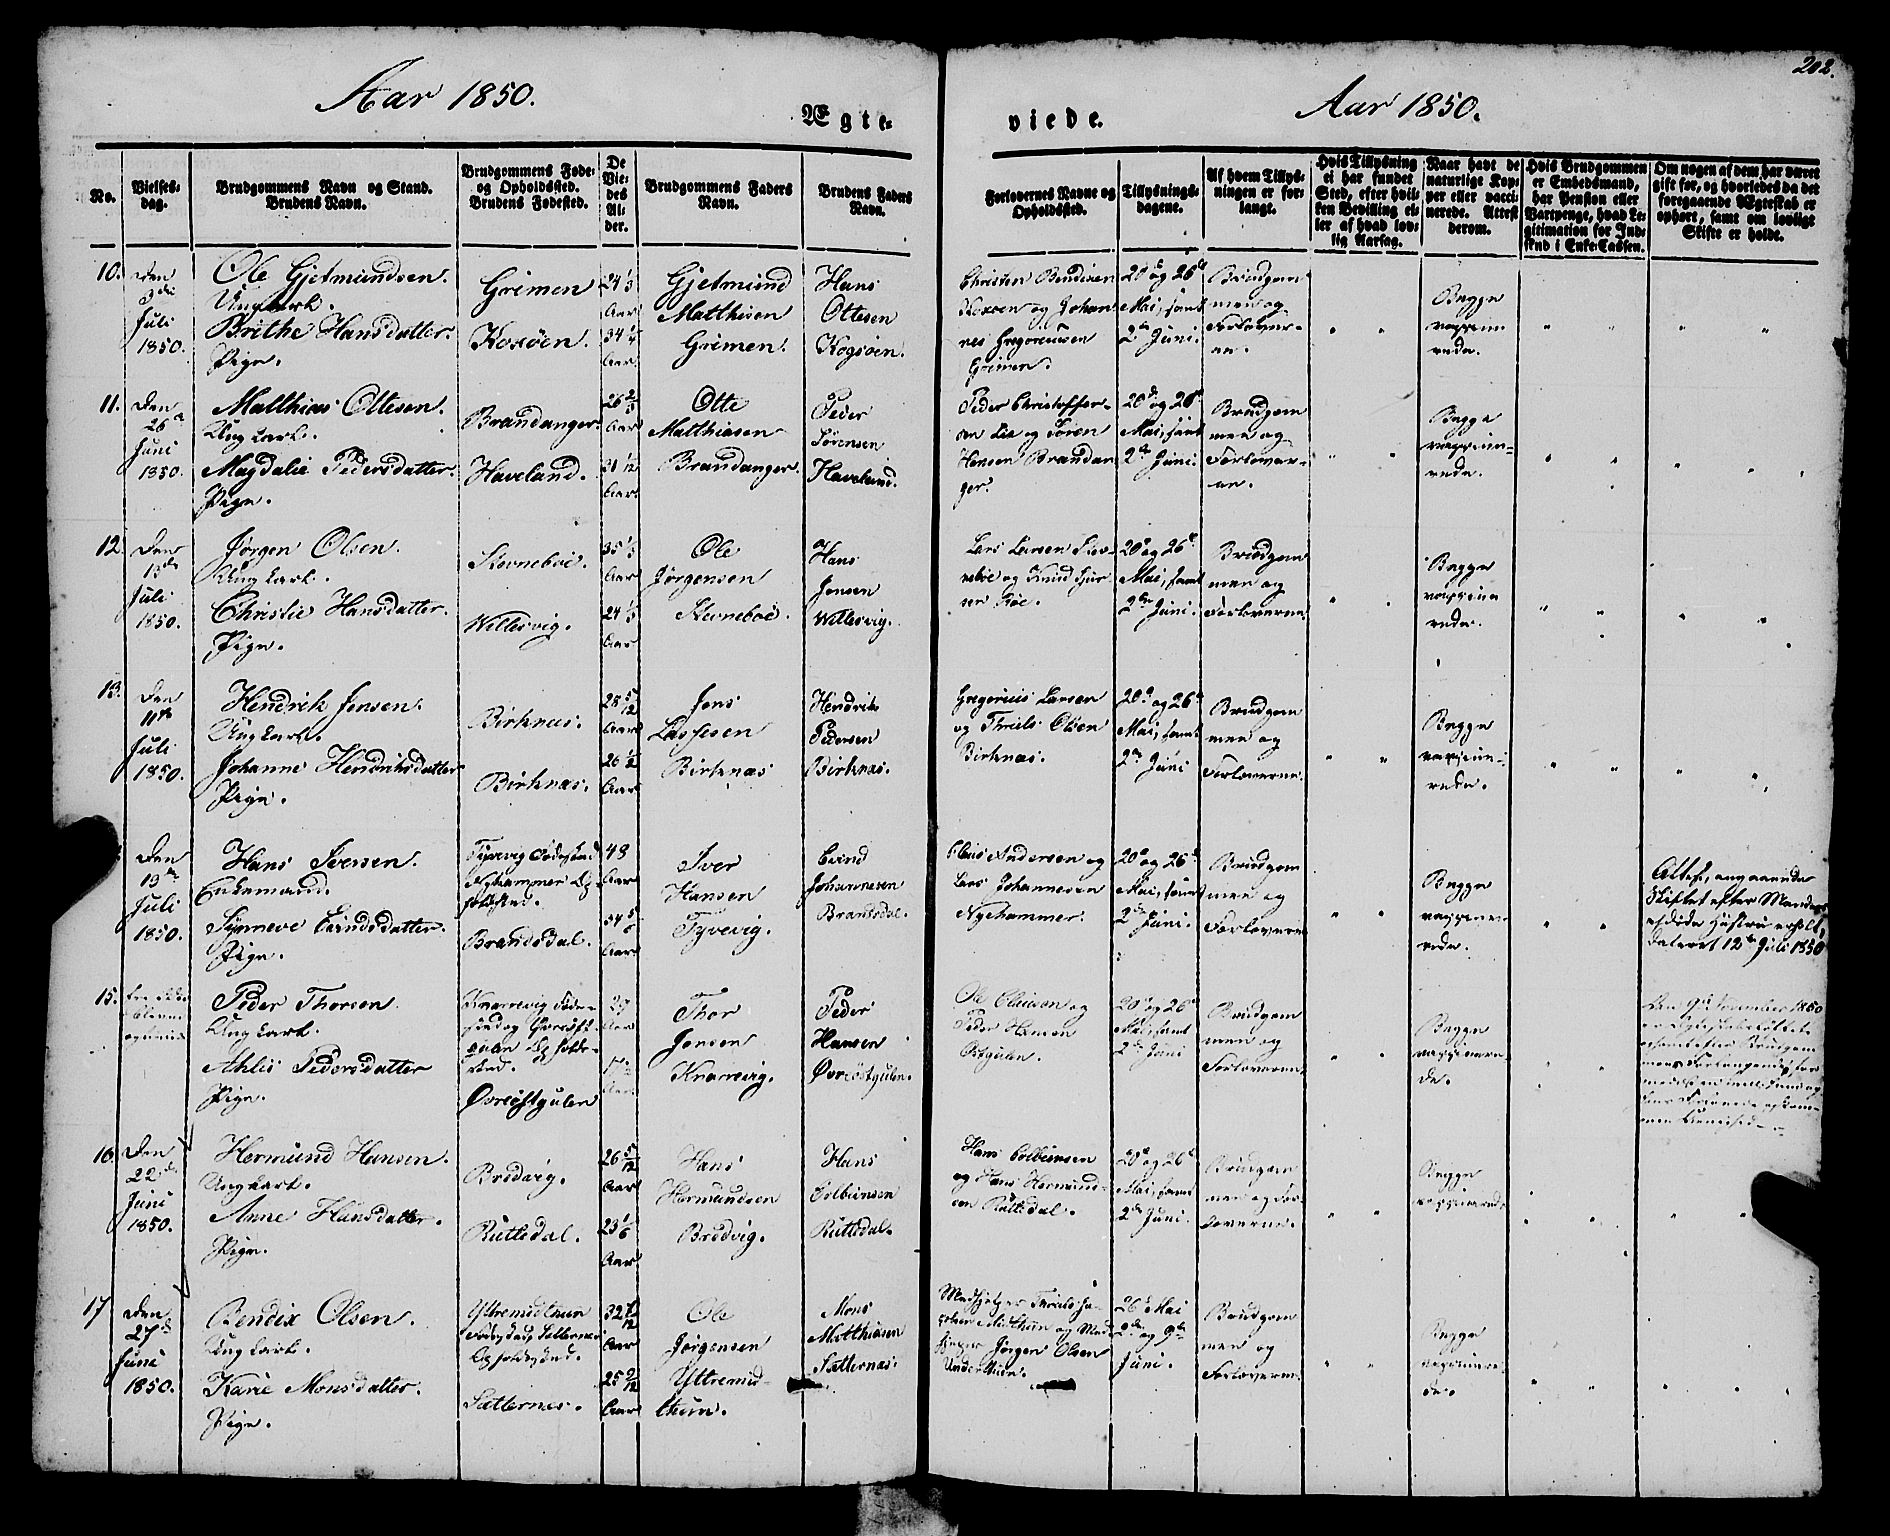 Aar 1850.
Ægte-
viede.
Aar 1850.
202.
No.
Vielses-
dag.
Brudgommens Navn og Stand.
Brudens Navn.
Brudgommens Føde-
og Opholdssted.
Brudens Fødested.
De
Vie-
des
Al-
der.
Brudgommens Faders
Navn.
Brudens Faders
Navn.
Forlovernes Navne og
Opholdssted.
Tillysnings-
dagene.
Af hvem Tillys-
ningen er for-
langt.
Hvis Tillysning
ei har fundet
Sted, efter hvil-
ken Bevilling el-
ler af hvad lov-
lig Aarsag.
Naar havt de
naturlige Kop-
per eller vacci-
nerede. Attest
derom.
Hvis Brudgommen
er Embedsmand,
har Pension eller
Vartpenge, hvad Le-
gitimation for Ind-
skud i Enke-Cassen.
Om nogen af dem har været
gift før, og hvorledes da det
foregaaende Ægteskab er
ophørt, samt om lovligt
Skifte er holdt.
10.
Den
3die
Juli
1850.
Ole Gjetmundsen.
Ungkarl.
Brithe Hansdatter.
Pige.
Grimen
Koxøen.
24 1/3
Aar
34 1/4
Aar
Gjetmund
Matthisen
Grimen.
Hans
Ottesen
Kogsøen.
Christen Bendixen
Koxøen og Johan
nes Gregoriussen
Grimen.
20de og 26de
Mai, samt
2den Juni.
Brudgom
men og
Forlover-
ne.
Begge
vaccine
rede.
11.
Den
26de
Juni
1850.
Matthias Ottesen.
Ungkarl.
Magdalie Pedersdatter.
Pige.
Brandanger
Haveland.
Aar
31 1/12
Aar
Otte
Matthiasen
Brandanger.
Peder
Sørensen
Haveland.
Peder Christoffer-
sen Lie og Søren
Hansen Brandan
ger.
20de og 26de
Mai, samt
2den Juni.
Brudgom
men og
Forlover-
ne.
Begge
vaccine-
rede.
12.
Den
13de
Juli
1850.
Jørgen Olsen.
Ungkarl.
Christie Hansdatter.
Pige.
Stevneboe.
Willesvig.
35 1/3
Aar
24 1/3
Aar
Ole
Jørgensen
Stevneboe.
Hans
Jensen
Willesvig.
Lars Larsen Stev-
neboe og Knud
20de og 26de
Mai, samt
2den Juni.
Brudgom
men og
Forloverne.
Begge
vaccine
rede.
13.
Den
11te
Juli
1850.
Hendrik Jensen.
Ungkarl.
Johanne Hendriksdatter
Pige.
Birknæs.
Birknæs.
28 5/12
Aar
26 1/2
Aar
Jens
Lassesen
Birknæs
Hendrik
Pedersen
Birknæs.
Gregorius Larsen
og Thruls Olsen
Birknæs.
20de og 26de
Mai, samt
2den Juni
Brudgom
men og
Forloverne.
Begge
vaccine-
rede.
Den
13de
Juli
1850.
Hans Iversen.
Enkemand.
Synneve Eindsdatter.
Pige.
Tyvevig Fødested
Nyehammer Op-
holdssted.
Brandsdal.
48
Aar
34 5/6
Aar
Iver
Hansen
Tyvevig.
Eeind
Johannesen
Brandsdal.
Claus Andersen og
Lars Johannesen
Nyehammer.
20de og 26de
Mai, samt
2den Juni.
Brudgom
men og
Forloverne
Begge
vaccine-
rede.
Attest, angaaende
Skiftet efter Mandens
afdøde Hustru erholdt,
dateret 12te Juli 1850
15.
Peder Thorsen
Ungkarl.
Ahlis Pedersdatter
Pige.
Knarrevig Føde-
sted og
Øvreøstgulen
29
Aar
Aar
Thor
Jensen
Knarrevig.
Peder
Hansen
Øvreøstgulen.
Ole Clausen og
Peder Hansen
Østgulen.
20de og 26de
Mai, samt
2den Juni
Brudgom
men og
Forloverne.
Begge
vaccinere-
de.
Den 9de November 1850
16.
Den
22de
Juni
1850.
Hermund Hansen.
Ungkarl.
Anne Hansdatter.
Pige.
Brodvig.
Rutledal.
26 5/12
Aar
23 1/6
Aar
Hans
Hermundsen
Brodvig.
Hans
Colbensen
Rutledal.
Hans Colbensen
og Hans Hermund-
sen Rutledal.
20de og 26de
Mai, samt
2den Juni.
Brudgom
men og For-
loverne.
Begge
vaccinerede
17
Den
27de
Juni
1850.
Bendix Olsen.
Ungkarl.
Karie Monsdatter.
Pige.
Yttremidthun
Fødested, Sætternæs
Opholdssted.
Sætternes.
Aar
25 9/12
Aar
Ole
Jørgensen
Yttremid-
thun.
Mons
Matthiasen
Sætternæs.
Medhjelper Thruls
Midthun og Med
hjelper Jørgen Olsen
Underthun.
26de Mai
2den og 9de
Juni.
Brudgom
men og
Forloverne.
Begge
vaccinere-
de.